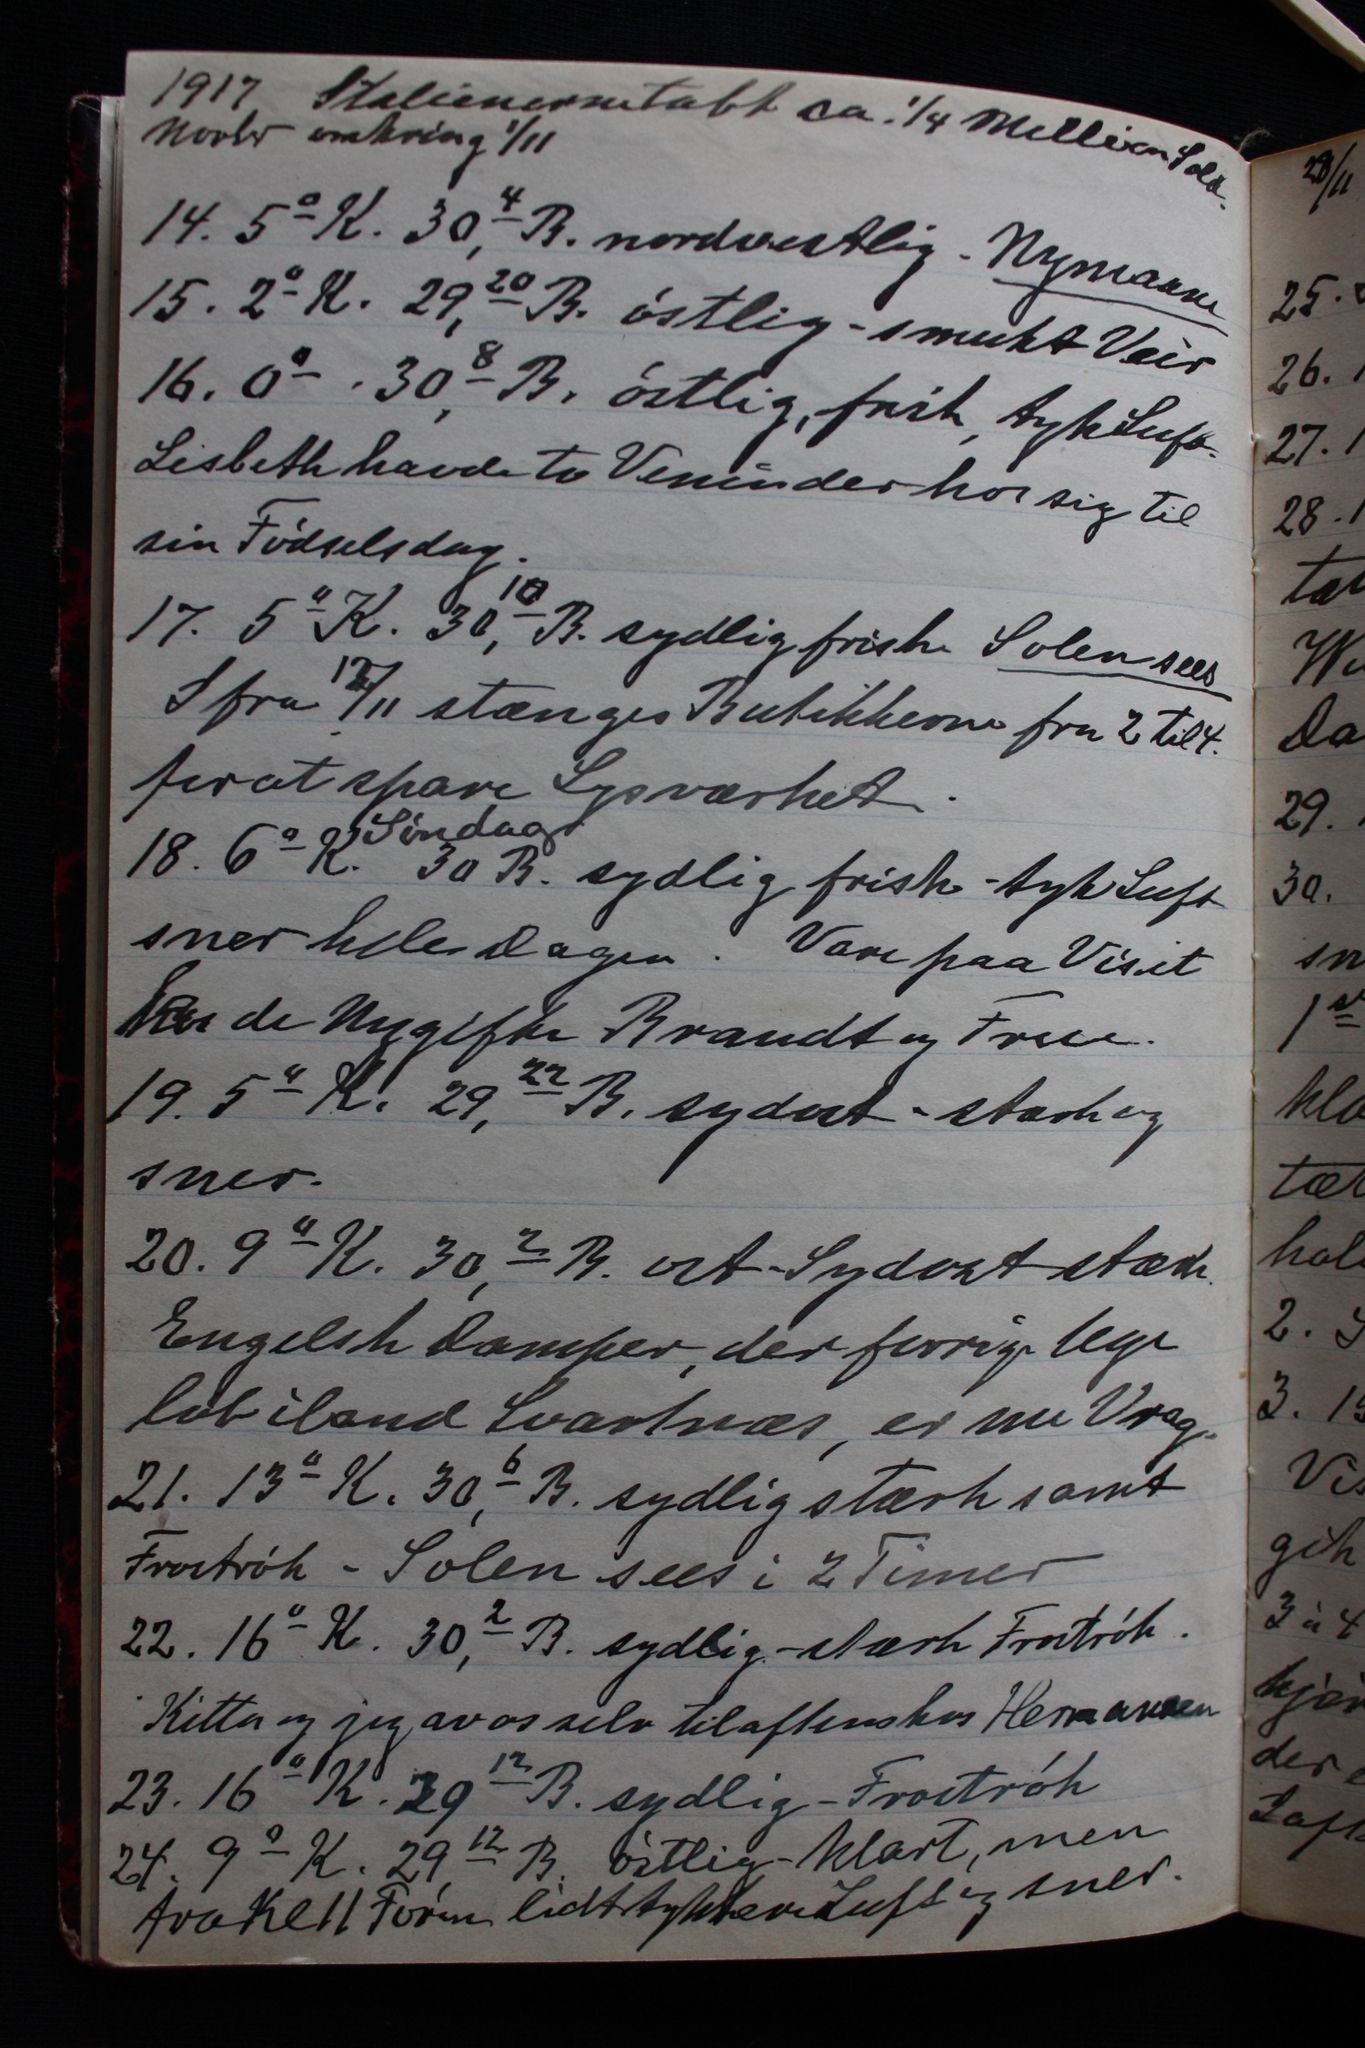 1917 Italienerne tabt ca. 1/4 Million Sold.
Novbr omkring 1/11
14. 5° K. 30,4 B. nordvestlig - Nymaane
15. 2° K. 29,20 B. östlig - smukt Veir
16. 0° . 30,8 B. östlig, frisk, tyk Luft.
Lisbeth havde to Veninder hos sig til
sin Födselsdag.
17. 5° K. 30,10 B. sydlig frisk Solen sees
I fra /11 stænges Butikkerne fra 2 til 4.
for at spare Lysværket.
18. 6° K. Söndag 30 B. sydlig frisk - tyk Luft
sner hele Dagen. Vare paa Visit
hos de Nygifte Brandt og Frue.
19. 5° K. 29,22 B. sydost - stærk og
sner.
20. 9° K. 30,2 B. ost - Sydost stærk.
Engelsk Damper, der forrige Uge
löb iland Svartnæs, er nu Vrag.
21. 13° K. 30,6 B. sydlig stærk samt
Froströk - Solen sees i 2 Timer
22. 16° K. 30,2 B. sydlig - stærk Froströk.
Kitta og jeg av os selv tilaftens hos Hermansen
23. 16° K. 29 12 B. sydlig - Froströk
24. 9° K. 29 12 B. östlig - klart, men
fra Kl 11 Form lidt tykkere Luft og sner.
25.
26.
27.
28.
29.
30.
2.
3.
3 à 4